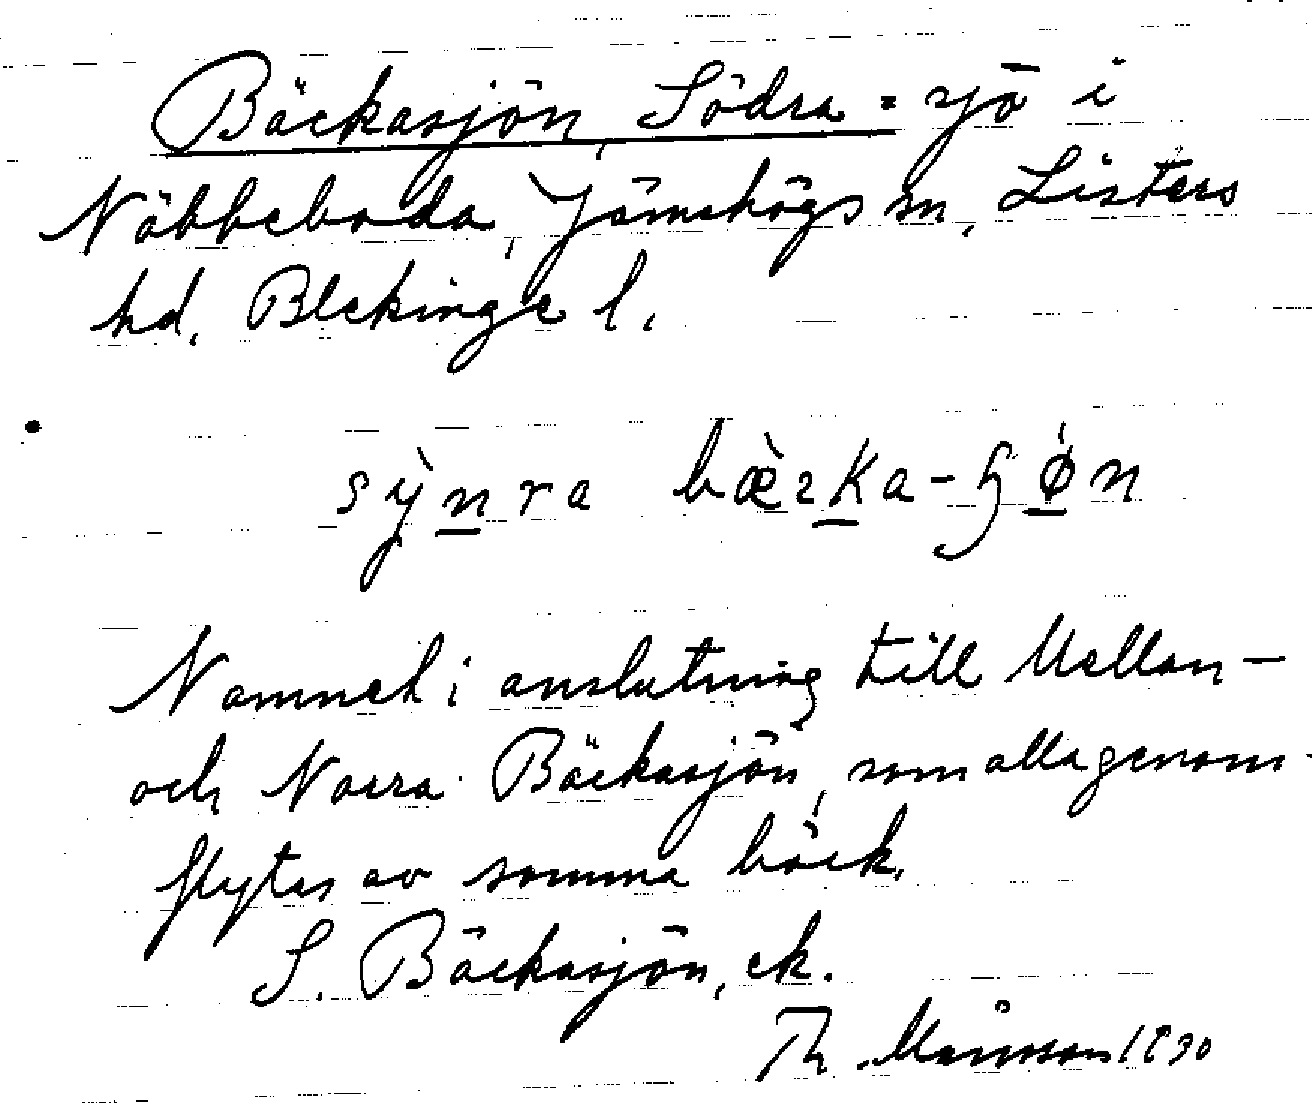 Bäckasjön, Södra = sjö i
Näbbeboda, Jämshögs sn, Listers
hd, Blekinge l.
sỳnra bæ̀ka-ɧǿn
Namnet i anslutning till Mellan-
och Norra Bäckasjön, som alla genom-
flytes av samma bäck.
S. Bäckasjön, ek.
Th. Månsson 1930